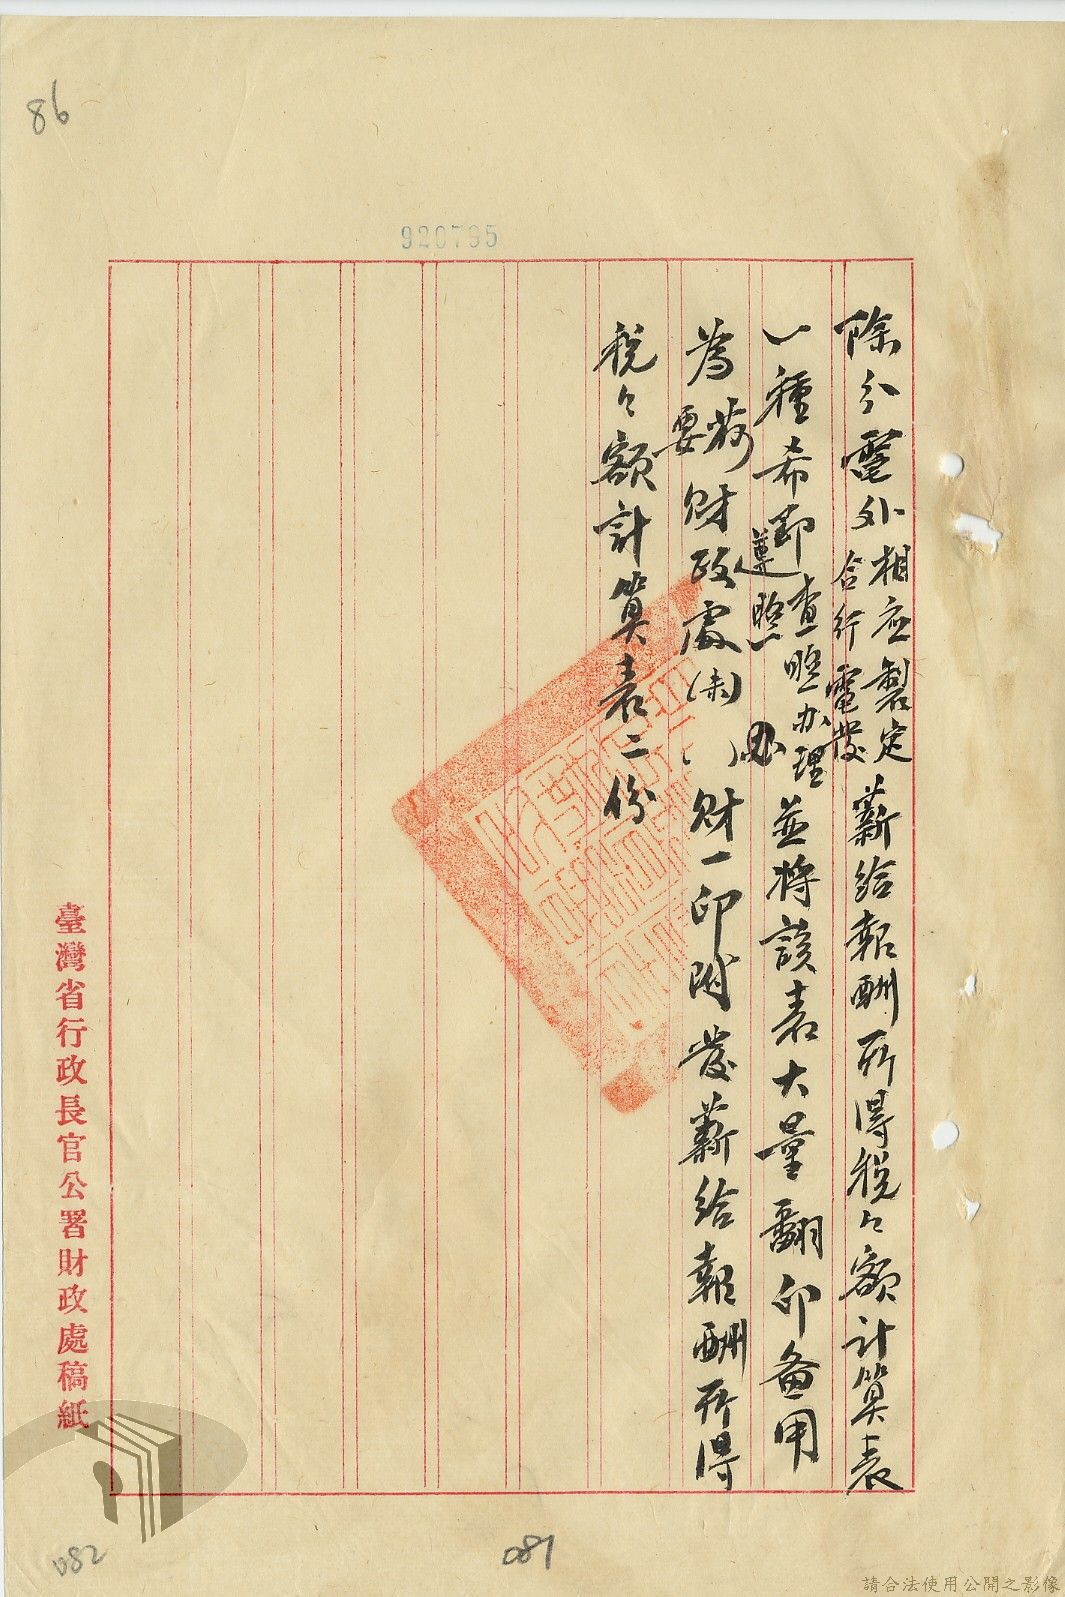 86
920795
除分電外相应製定合行電發薪給報酬所得稅々額計算表
一種希即查照办理遵照办並將該表大量翻印备用
為荷要財政處(未)( )財一印附發薪給報酬所得
稅々額計算表二份
臺灣省行政長官公署財政處稿紙
082
081
請合法使用公開之影像